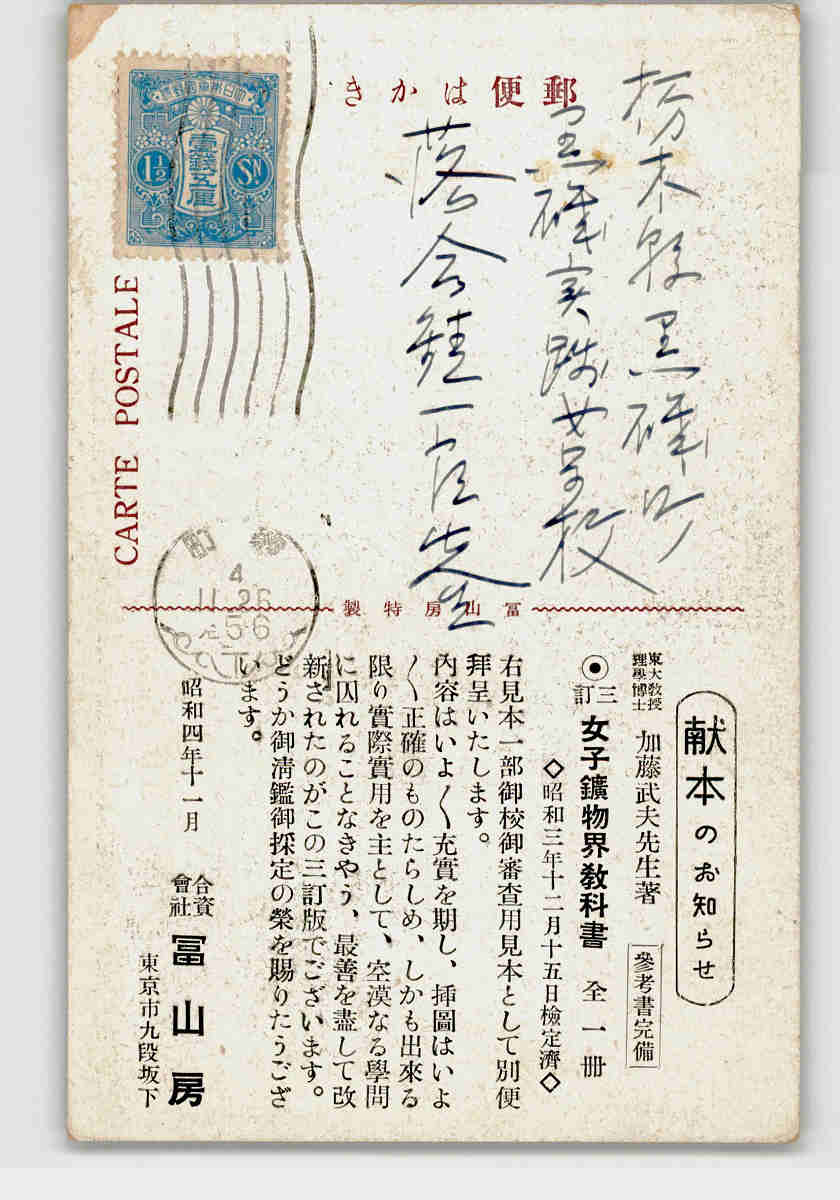 郵便はかき
大日本帝國郵便
壹錢五厘
1½ Sɴ
CARTE POSTALE
栃木縣黒磯町
黒磯実践女学校
落合
先生
4
11.26
冨山房特製
献本のお知らせ
東大教授
理學博士
加藤武夫先生著
參考書完備
三訂
女子鑛物界教科書 全一冊
◇昭和三年十二月十五日檢定濟◇
右見本一部御校御審査用見本として別便
拜呈いたします。
內容はいよ〱充實を期し、揷圖はいよ
〱正確のものたらしめ、しかも出來る
限り實際實用を主として、空漠なる學問
に囚れることなきやう、最善を盡して改
新されたのがこの三訂版でございます。
どうか御淸鑑御採定の榮を賜りたうござ
います。
昭和四年十一月
合資會社
冨山房
東京市九段坂下